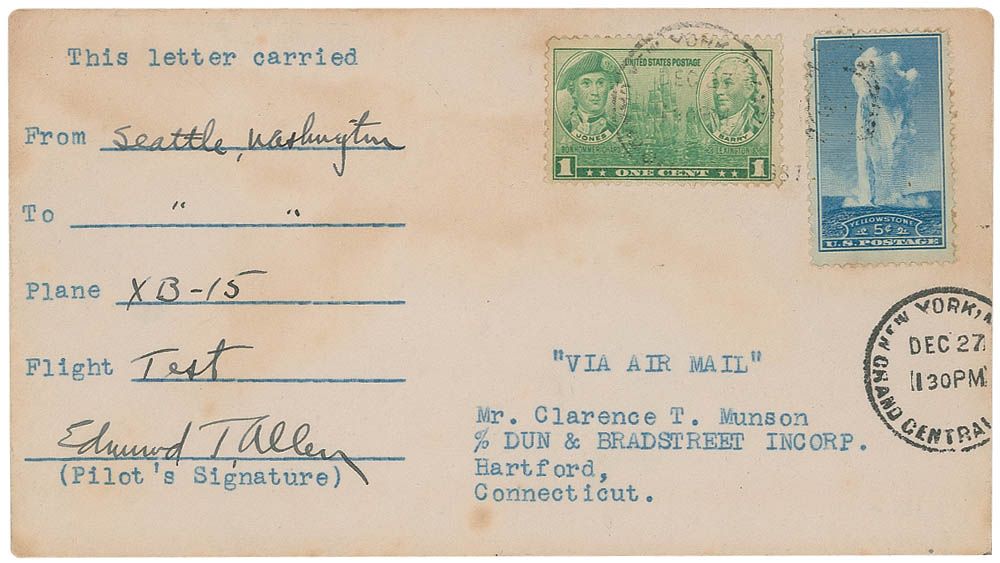 This letter carried
From Seattle, Washington
To " "
Plane XB-15
Flight Test
Edmund T Allen
(Pilot's Signature)
UNITED STATES POSTAGE
JONES
BARRY
BON HOMME RICHARD
LEXINGTON
1 ONE CENT 1
NEW YORK
DEC 27
YELLOWSTONE
5¢
U.S. POSTAGE
NEW YORK, N
DEC 27
1130PM
GRAND CENTRAL
"VIA AIR MAIL"
Mr. Clarence T. Munson
% DUN & BRADSTREET INCORP.
Hartford,
Connecticut.